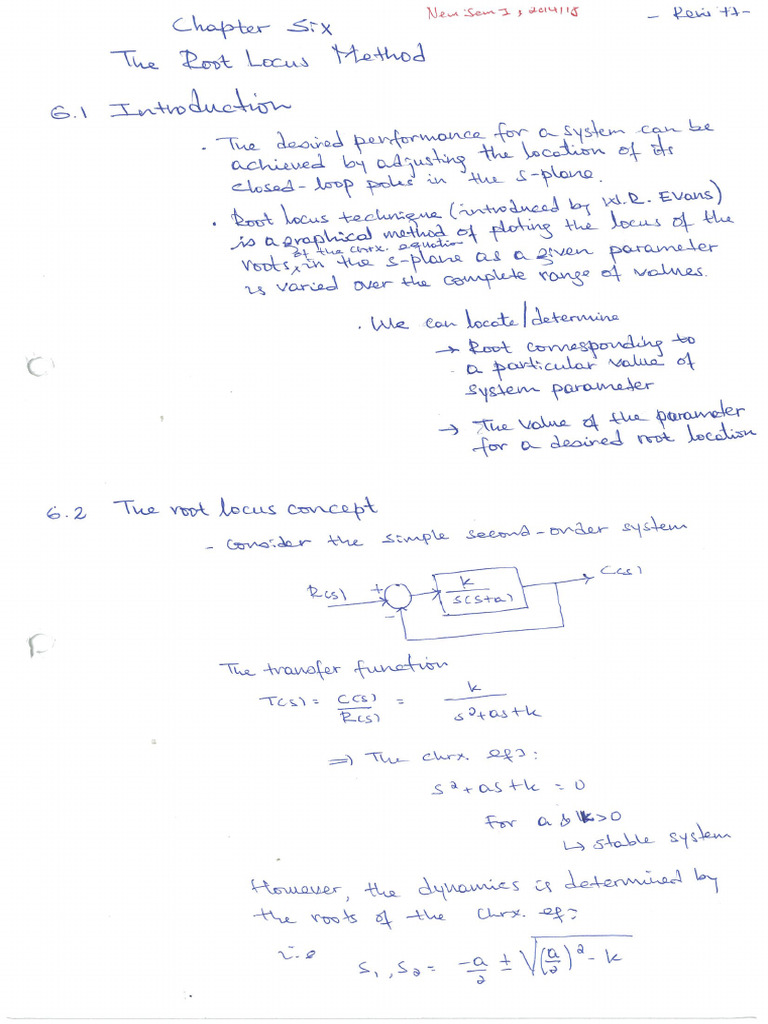 New: Sem I, 2014/15
Chapter Six
The Root Locus Method
6.1 Introduction
. The desired performance for a system can be
achieved by adjusting the location of its
closed-loop poles in the s-plane.
. Root locus technique (introduced by W.R. Evans)
is a graphical method of ploting the locus of the
of the chrx. equation
roots, in the s-plane as a given parameter
is varied over the complete range of values.
. We can locate/determine
→ Root corresponding to
a particular value of
system parameter
→ The value of the parameter
for a desired root location
6.2 The root locus concept
- consider the simple second-order system
R(s) + - k/s(s+a) C(s)
The transfer function
T(s) = C(s)/R(s) = k/s²+as+k
⇒ The chrx. eqn:
s²+as+k = 0
For a & k>0
↳ stable system
However, the dynamics is determined by
the roots of the chrx. eqn:
i.e
s₁, s₂ = -a/2 ± √(a/2)² - k